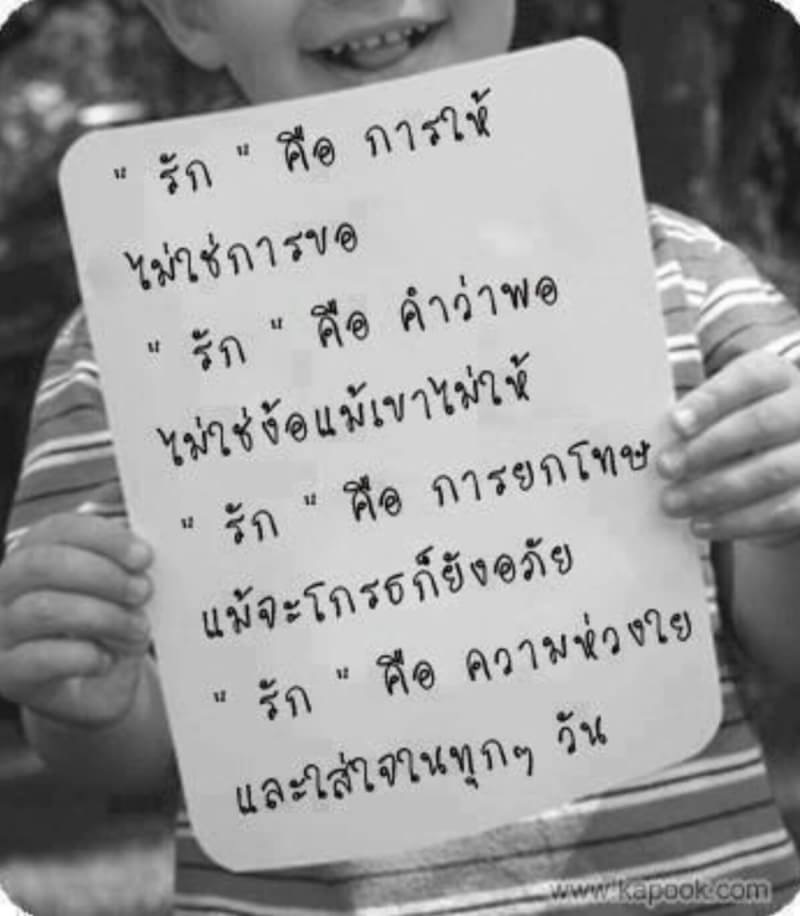 " รัก " คือ การให้
ไม่ใช่การขอ
" รัก " คือ คำว่าพอ
ไม่ใช่ง้อแม้เขาไม่ให้
" รัก " คือ การยกโทษ
แม้จะโกรธก็ยังอภัย
" รัก " คือ ความห่วงใย
และใส่ใจในทุกๆ วัน
www.kapook.com